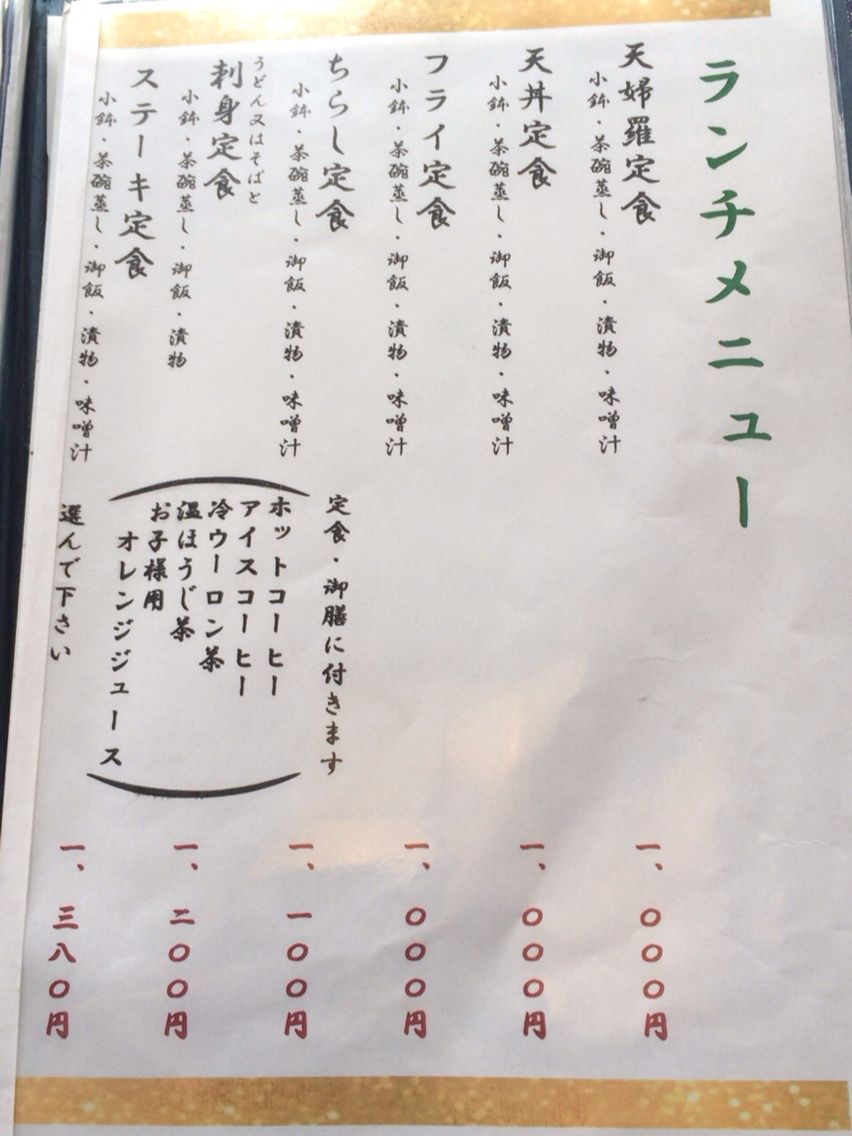 ランチメニュー
天婦羅定食
小鉢・茶碗蒸し・御飯・漬物・味噌汁
一、〇〇〇円
天丼定食
小鉢・茶碗蒸し・御飯・漬物・味噌汁
一、〇〇〇円
フライ定食
小鉢・茶碗蒸し・御飯・漬物・味噌汁
一、〇〇〇円
ちらし定食
小鉢・茶碗蒸し・御飯・漬物・味噌汁
一、一〇〇円
うどん又はそばと
刺身定食
小鉢・茶碗蒸し・御飯・漬物
一、二〇〇円
ステーキ定食
小鉢・茶碗蒸し・御飯・漬物・味噌汁
一、三八〇円
定食・御膳に付きます
ホットコーヒー
アイスコーヒー
冷ウーロン茶
温ほうじ茶
お子様用
オレンジジュース
選んで下さい